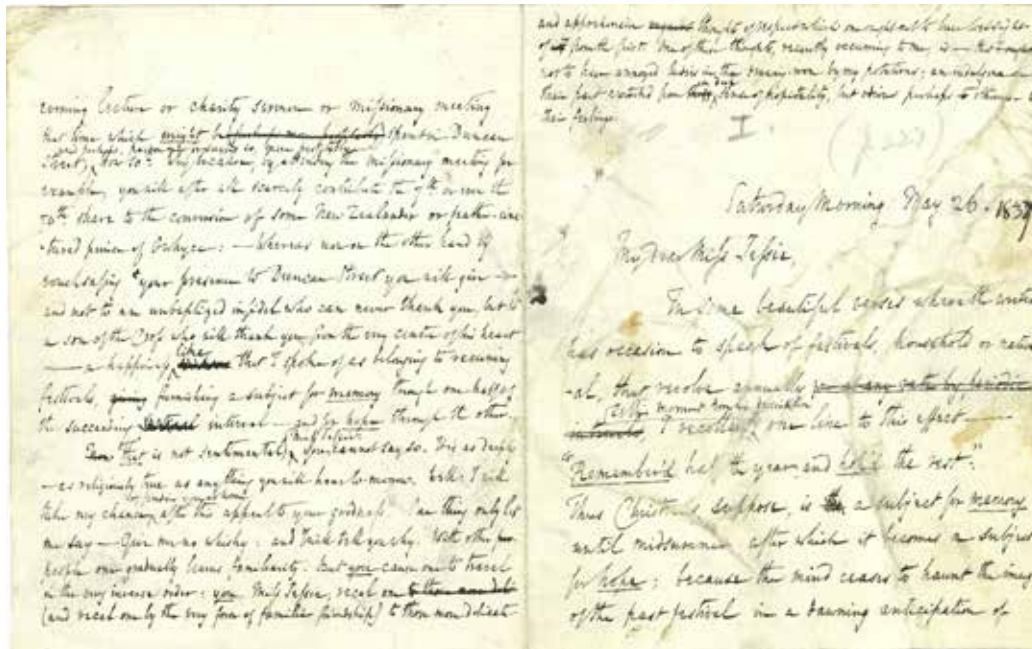 coming lecture or charity sermon or missionary meeting
that hour which might be (perhaps more profitably) spent in Duncan
Street;
example, you will after all scarcely contribute the 9th or even the
10th share to the conversion of some New Zealander or feather-cinc-
-tured prince of Owhyee: — Whereas now on the other hand by
vouchsafing your presence to Duncan Street you will give —
and not to an unbaptized infidel who can never thank you, but to
a son of the who will thank you from the very centre of his heart
— a happiness like that I spoke of as belonging to recurring
festivals, giving furnishing a subject for memory through one half of
the succeeding interval — and for hope through the other.
That is not sentimental, Miss Jessie: you cannot say so. It is as deeply
— as religiously true as anything you will hear to-morrow. Well: I will
take my chance after this appeal to your goodness. One thing only let
me say — Give me no whisky: and I will tell you why. With other
people one gradually learns familiarity. But you cause one to travel
in the very inverse order: you, Miss Jessie, recal one to those more
(and recal one by the very force of familiar friendship) to those more delicate
and apprehensive thoughts of respect which one ought to have
of from the first. One of these thoughts, recently occurring to me, is — that I ought
not to have annoyed ladies in the by my potations; an indulgence on
their part extended from of hospitality, but perhaps to
their feelings.
I.
Saturday Morning May 26. 1837
My dear Miss Jessie,
In some beautiful verses where the writer
has occasion to speak of festivals, household or nation-
-al, that revolve annually or at any rate by periodic
intervals, I recollect one line to this effect —
"Remember'd half the year and hoped the rest".
Thus Christmas suppose, is a subject for memory
until midsummer after which it becomes a subject
for hope; because the mind ceases to haunt the image
of the past festival in a dawning anticipation of